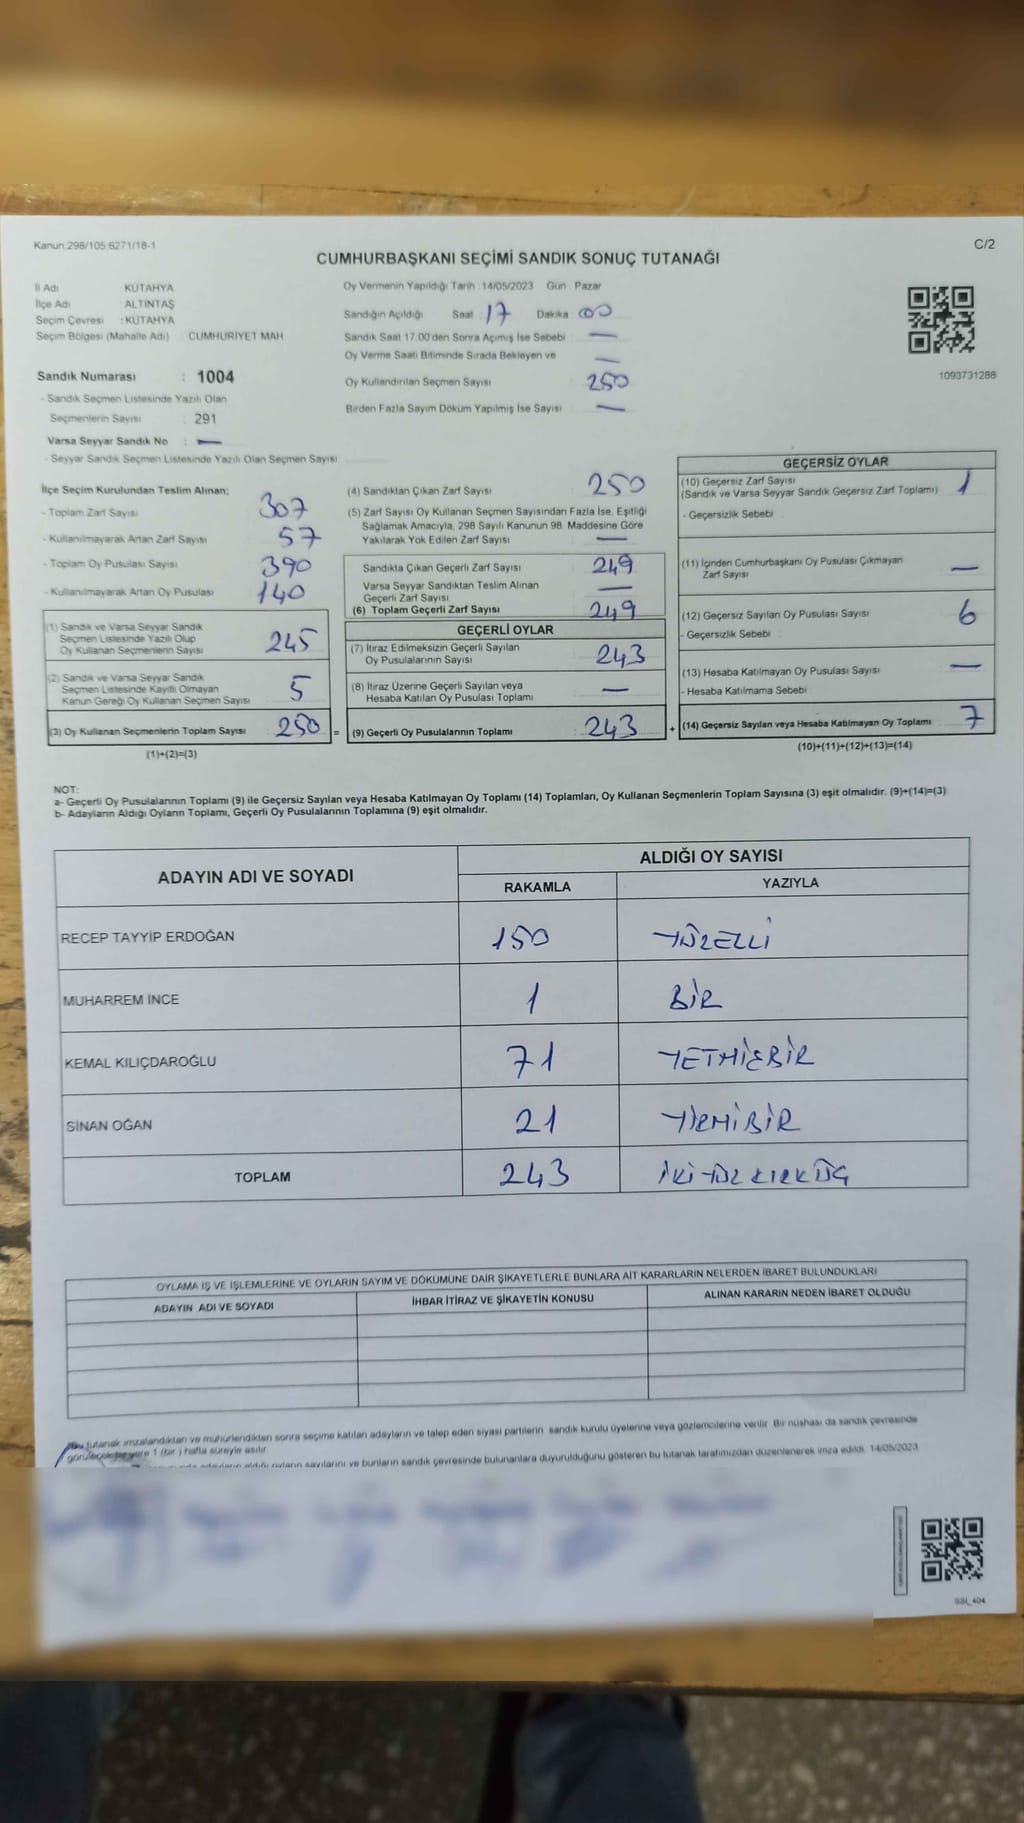 Kanun.298/105,6271/18-1
C/2
CUMHURBAŞKANI SEÇİMİ SANDIK SONUÇ TUTANAĞI
İl Adı : KÜTAHYA
İlçe Adı : ALTINTAŞ
Seçim Çevresi : KÜTAHYA
Seçim Bölgesi (Mahalle Adı) CUMHURİYET MAH
Sandık Numarası : 1004
- Sandık Seçmen Listesinde Yazılı Olan
Seçmenlerin Sayısı : 291
Varsa Seyyar Sandık No : —
- Seyyar Sandık Seçmen Listesinde Yazılı Olan Seçmen Sayısı
Oy Vermenin Yapıldığı Tarih : 14/05/2023 Gün : Pazar
Sandığın Açıldığı Saat : 17 Dakika : 00
Sandık Saat 17.00'den Sonra Açılmış İse Sebebi : —
Oy Verme Saati Bitiminde Sırada Bekleyen ve —
Oy Kullandırılan Seçmen Sayısı : 250
Birden Fazla Sayım Döküm Yapılmış İse Sayısı : —
1093731288
İlçe Seçim Kurulundan Teslim Alınan;
- Toplam Zarf Sayısı : 307
- Kullanılmayarak Artan Zarf Sayısı : 57
- Toplam Oy Pusulası Sayısı : 390
- Kullanılmayarak Artan Oy Pusulası : 140
(1) Sandık ve Varsa Seyyar Sandık
Seçmen Listesinde Yazılı Olup
Oy Kullanan Seçmenlerin Sayısı : 245
(2) Sandık ve Varsa Seyyar Sandık
Seçmen Listesinde Kayıtlı Olmayan
Kanun Gereği Oy Kullanan Seçmen Sayısı : 5
(3) Oy Kullanan Seçmenlerin Toplam Sayısı : 250 =
(1)+(2)=(3)
(4) Sandıktan Çıkan Zarf Sayısı : 250
(5) Zarf Sayısı Oy Kullanan Seçmen Sayısından Fazla İse, Eşitliği
Sağlamak Amacıyla, 298 Sayılı Kanunun 98. Maddesine Göre
Yakılarak Yok Edilen Zarf Sayısı : —
Sandıkta Çıkan Geçerli Zarf Sayısı : 249
Varsa Seyyar Sandıktan Teslim Alınan
Geçerli Zarf Sayısı : —
(6) Toplam Geçerli Zarf Sayısı : 249
GEÇERLİ OYLAR
(7) İtiraz Edilmeksizin Geçerli Sayılan
Oy Pusulalarının Sayısı : 243
(8) İtiraz Üzerine Geçerli Sayılan veya
Hesaba Katılan Oy Pusulası Toplamı : —
(9) Geçerli Oy Pusulalarının Toplamı : 243 +
GEÇERSİZ OYLAR
(10) Geçersiz Zarf Sayısı : 1
(Sandık ve Varsa Seyyar Sandık Geçersiz Zarf Toplamı)
- Geçersizlik Sebebi
(11) İçinden Cumhurbaşkanı Oy Pusulası Çıkmayan
Zarf Sayısı —
(12) Geçersiz Sayılan Oy Pusulası Sayısı : 6
- Geçersizlik Sebebi
(13) Hesaba Katılmayan Oy Pusulası Sayısı : —
- Hesaba Katılmama Sebebi
(14) Geçersiz Sayılan veya Hesaba Katılmayan Oy Toplamı : 7
(10)+(11)+(12)+(13)=(14)
NOT:
a- Geçerli Oy Pusulalarının Toplamı (9) ile Geçersiz Sayılan veya Hesaba Katılmayan Oy Toplamı (14) Toplamları, Oy Kullanan Seçmenlerin Toplam Sayısına (3) eşit olmalıdır. (9)+(14)=(3)
b- Adayların Aldığı Oyların Toplamı, Geçerli Oy Pusulalarının Toplamına (9) eşit olmalıdır.
ADAYIN ADI VE SOYADI ALDIĞI OY SAYISI
RAKAMLA YAZIYLA
RECEP TAYYİP ERDOĞAN 150 YÜZELLİ
MUHARREM İNCE 1 BİR
KEMAL KILIÇDAROĞLU 71 YETMİŞBİR
SİNAN OĞAN 21 YİRMİBİR
TOPLAM 243 İKİYÜZ KIRKÜÇ
OYLAMA İŞ VE İŞLEMLERİNE VE OYLARIN SAYIM VE DÖKÜMÜNE DAİR ŞİKAYETLERLE BUNLARA AİT KARARLARIN NELERDEN İBARET BULUNDUKLARI
ADAYIN ADI VE SOYADI İHBAR İTİRAZ VE ŞİKAYETİN KONUSU ALINAN KARARIN NEDEN İBARET OLDUĞU
Bu tutanak imzalandıktan ve mühürlendikten sonra seçime katılan adayların ve talep eden siyasi partilerin sandık kurulu üyelerine veya gözlemcilerine verilir. Bir nüshası da sandık çevresinde
görülecek bir yere 1 (bir) hafta süreyle asılır.
aldığı oyların sayılarını ve bunların sandık çevresinde bulunanlara duyurulduğunu gösteren bu tutanak tarafımızdan düzenlenerek imza edildi. 14/05/2023
SSI_404